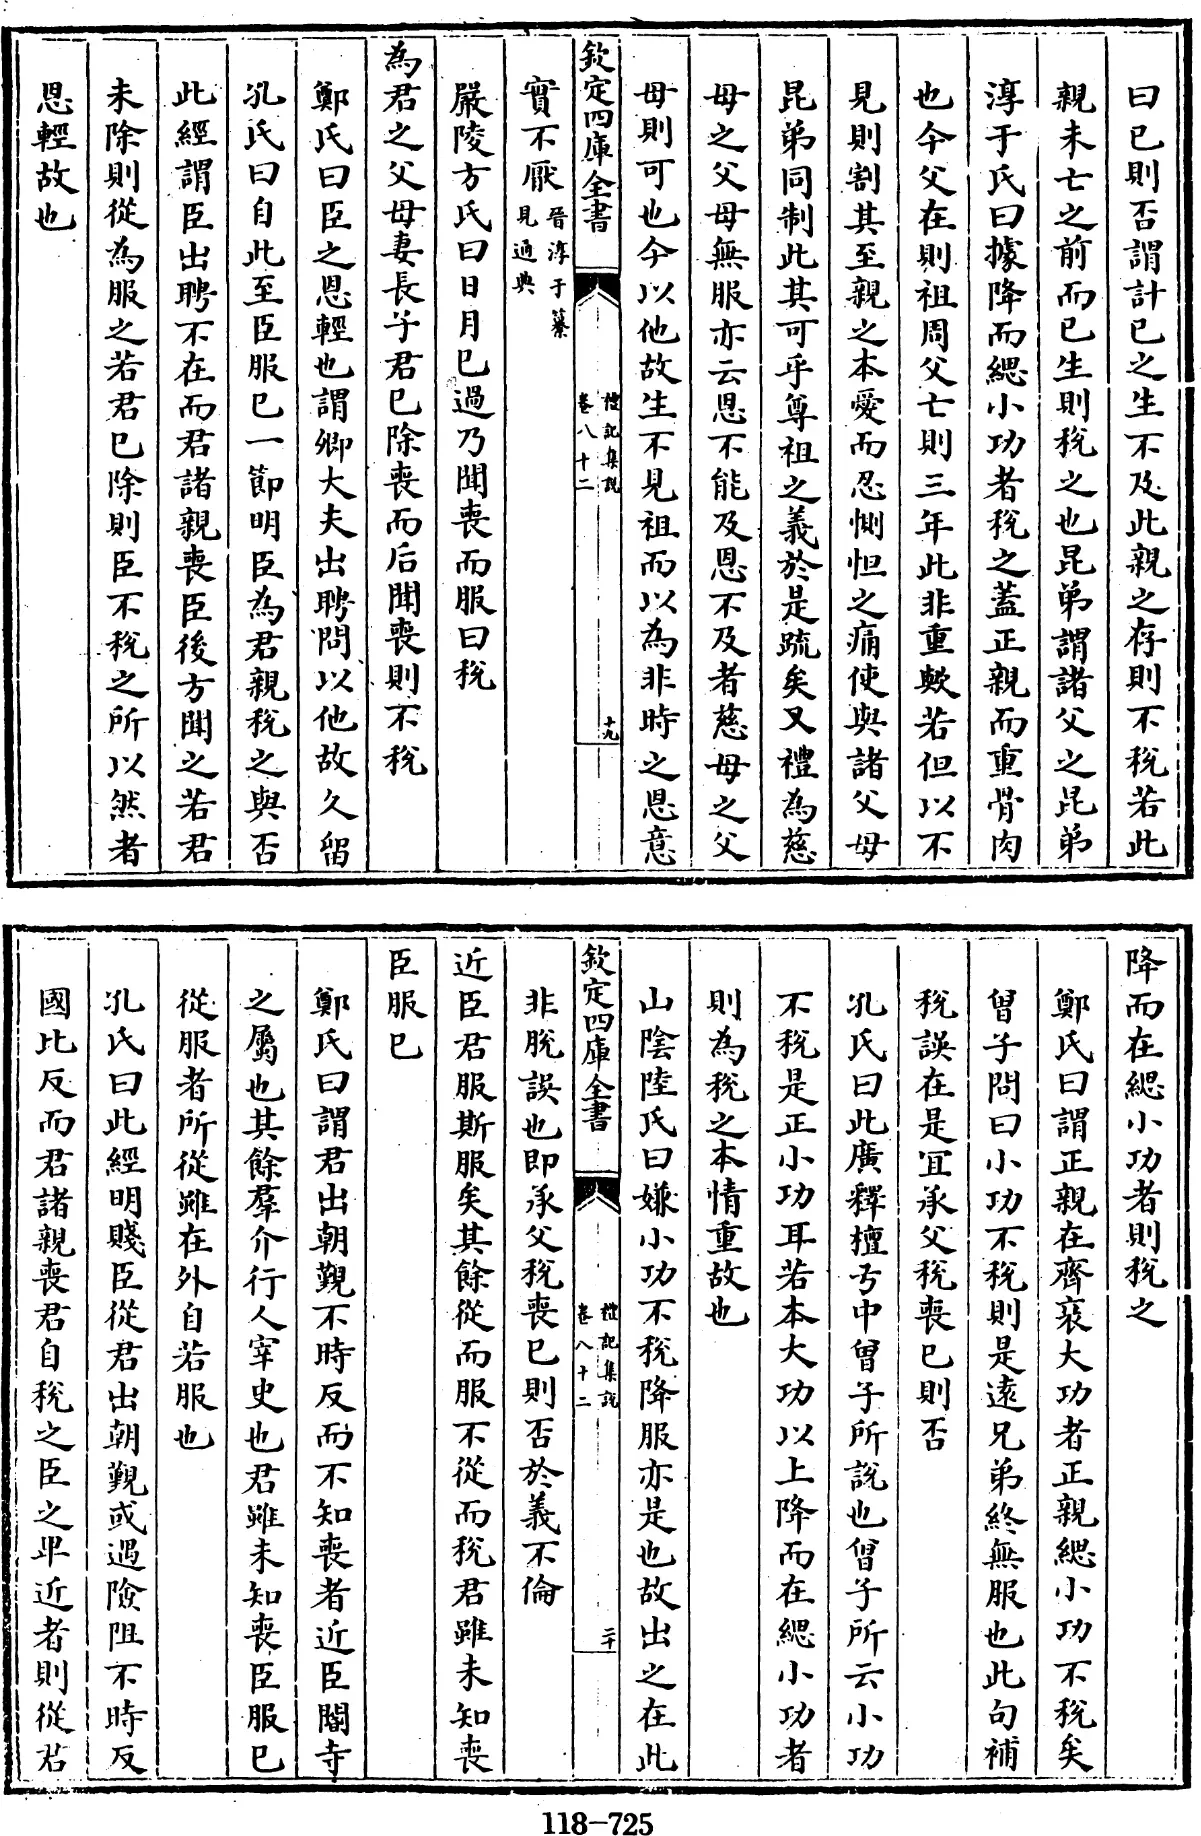 曰已則否謂計已之生不及此親之存則不稅若此
親未亡之前而已生則稅之也昆弟謂諸父之昆弟
淳于氏曰據降而緦小功者稅之蓋正親而重骨肉
也今父在則祖周父亡則三年此非重歟若但以不
見則割其至親之本愛而忍惻怛之痛使與諸父母
昆弟同制此其可乎尊祖之義於是疏矣又禮為慈
母之父母無服亦云恩不能及恩不及者慈母之父
母則可也今以他故生不見祖而以為非時之恩意
欽定四庫全書
禮記集說
卷八十二
十九
實不厭晉淳于纂見通典
嚴陵方氏曰日月已過乃聞喪而服曰稅
為君之父母妻長子君已除喪而后聞喪則不稅
鄭氏曰臣之恩輕也謂卿大夫出聘問以他故久留
孔氏曰自此至臣服已一節明臣為君親稅之與否
此經謂臣出聘不在而君諸親喪臣後方聞之若君
未除則從為服之若君已除則臣不稅之所以然者
恩輕故也
降而在緦小功者則稅之
鄭氏曰謂正親在齊衰大功者正親緦小功不稅矣
曾子問曰小功不稅則是遠兄弟終無服也此句補
稅誤在是宜承父稅喪已則否
孔氏曰此廣釋檀弓中曾子所說也曾子所云小功
不稅是正小功耳若本大功以上降而在緦小功者
則為稅之本情重故也
山陰陸氏曰嫌小功不稅降服亦是也故出之在此
欽定四庫全書
禮記集說
卷八十二
二十
非脫誤也即承父稅喪已則否於義不倫
近臣君服斯服矣其餘從而服不從而稅君雖未知喪
臣服已
鄭氏曰謂君出朝覲不時反而不知喪者近臣閽寺
之屬也其餘羣介行人宰史也君雖未知喪臣服已
從服者所從雖在外自若服也
孔氏曰此經明賤臣從君出朝覲或遇險阻不時反
國比反而君諸親喪君自稅之臣之卑近者則從君
118-725